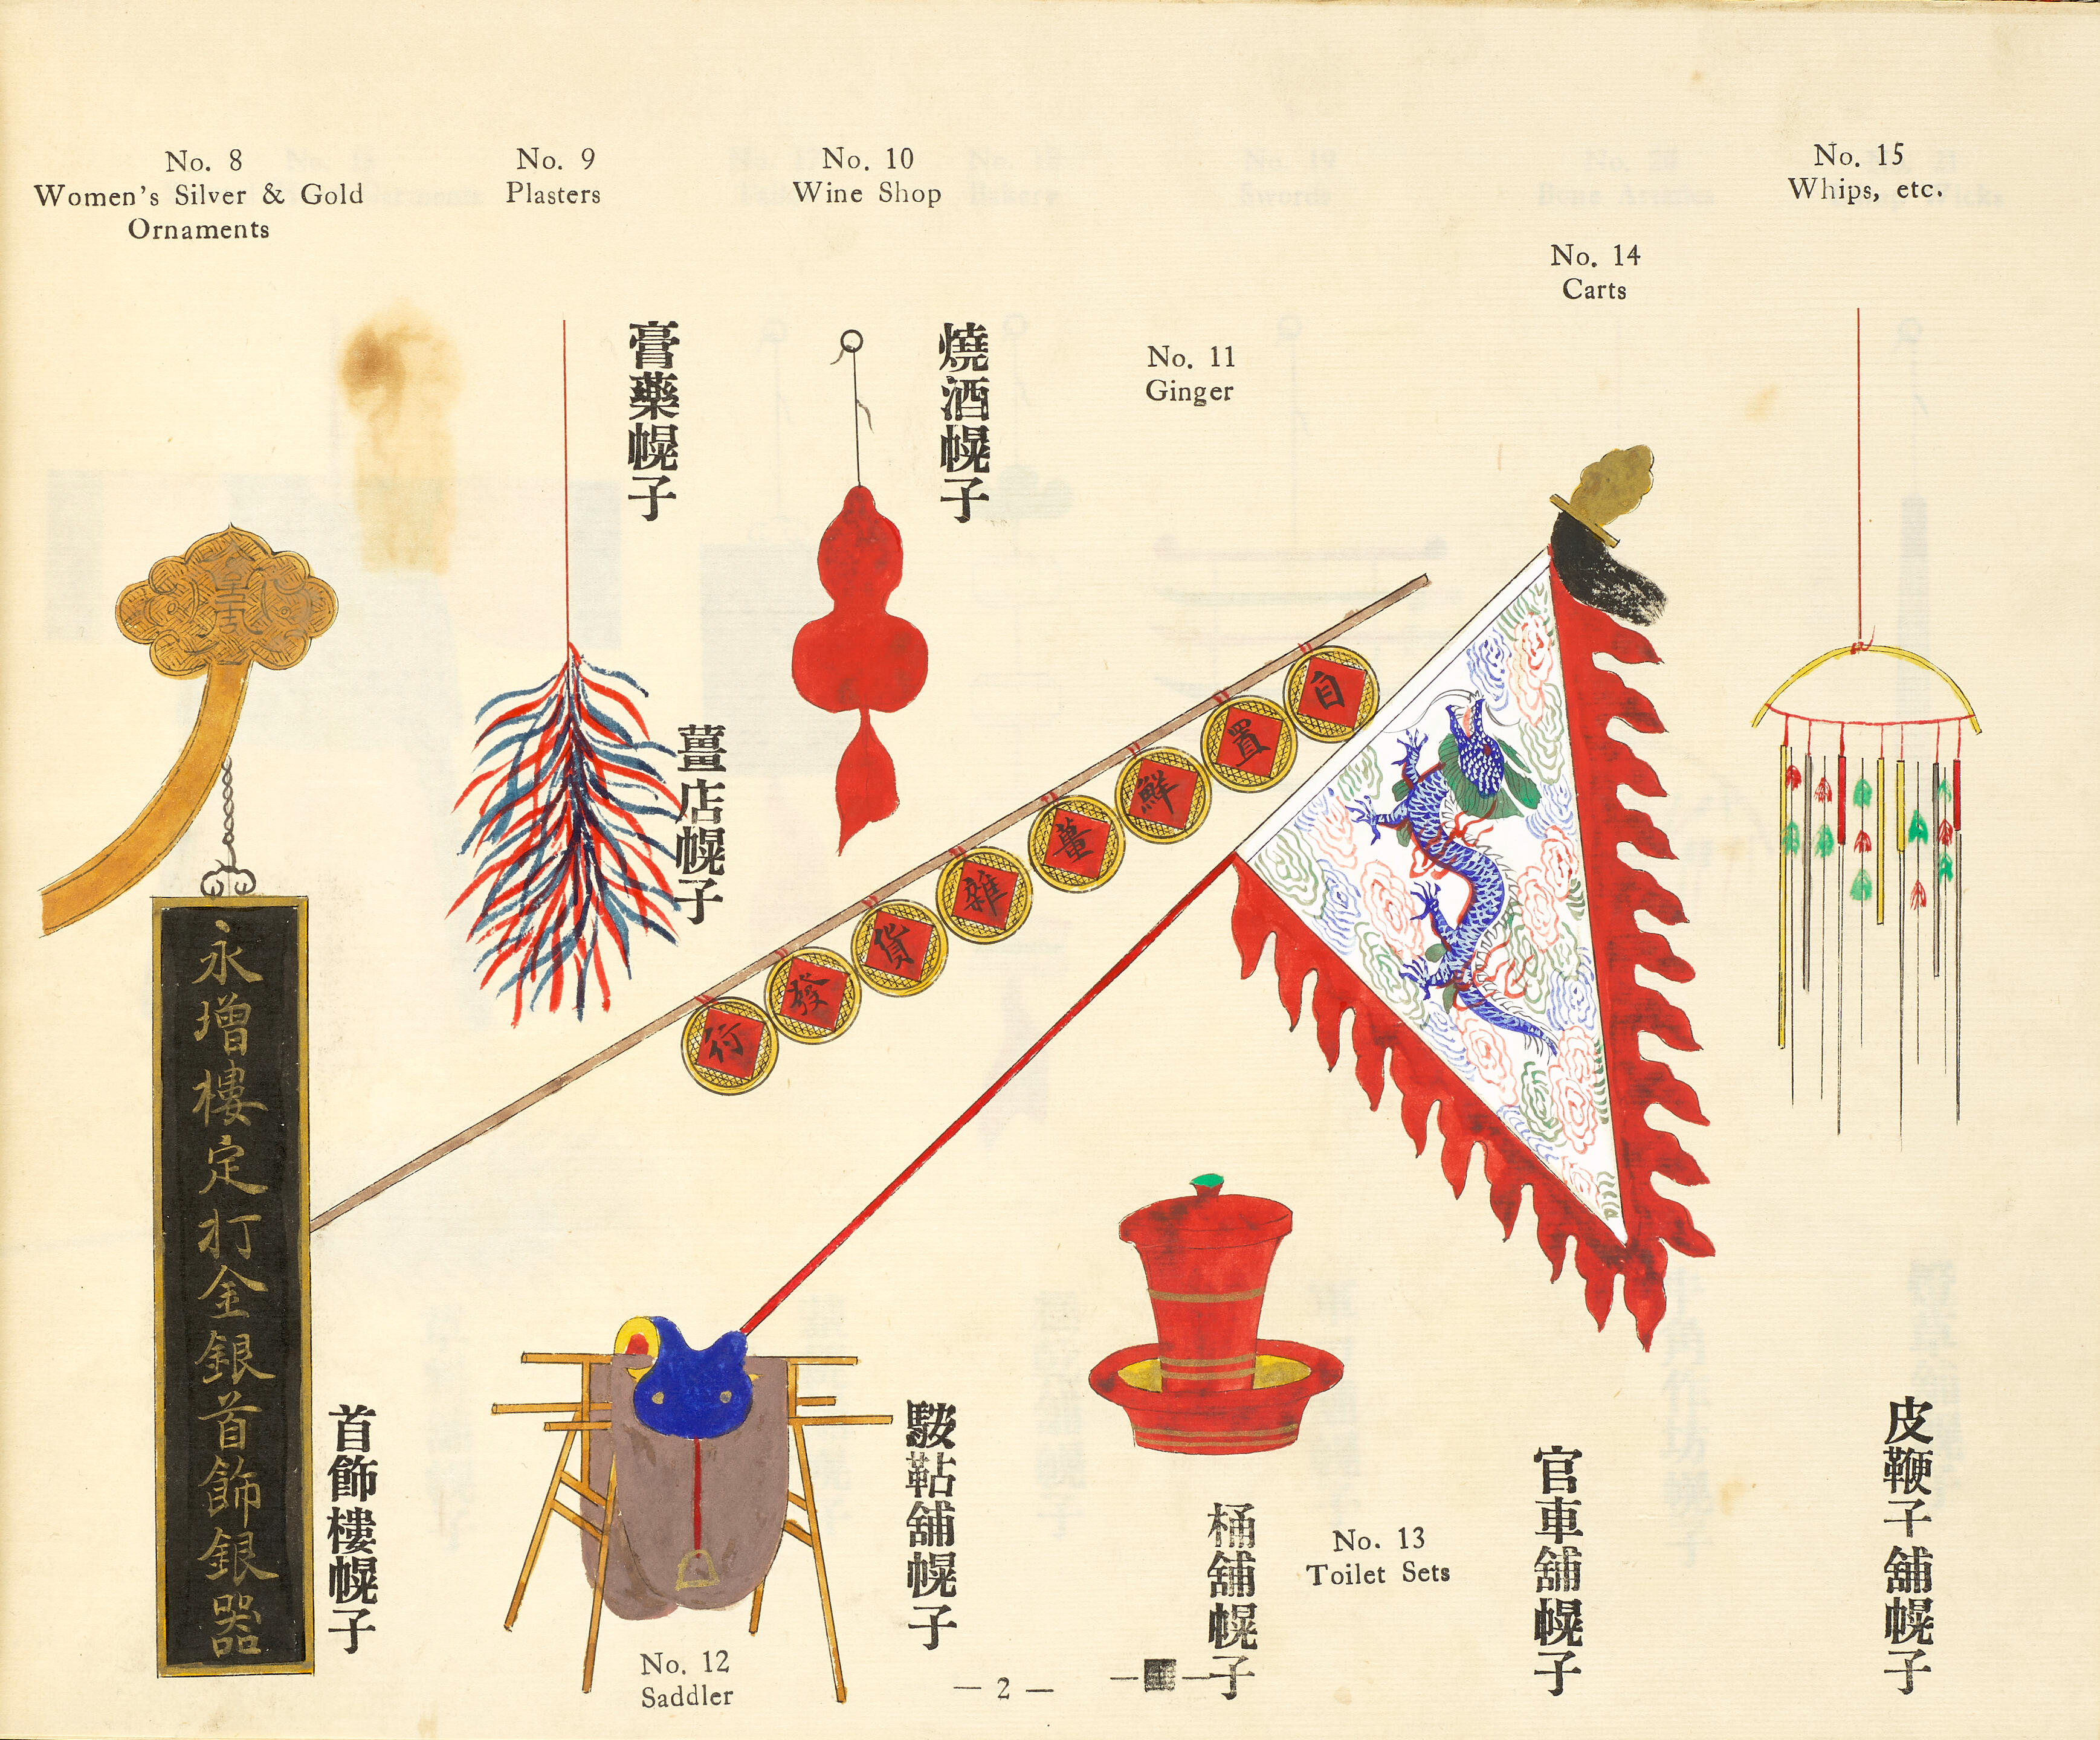 No. 8
Women's Silver & Gold
Ornaments
No. 9
Plasters
No. 10
Wine Shop
No. 15
Whips, etc.
No. 14
Carts
No. 11
Ginger
膏藥幌子
燒酒幌子
薑店幌子
自置鮮薑雜貨發行
永增樓定打金銀首飾銀器
首飾樓幌子
鞍韂舖幌子
桶舖幌子
官車舖幌子
皮鞭子舖幌子
No. 13
Toilet Sets
No. 12
Saddler
— 2 —